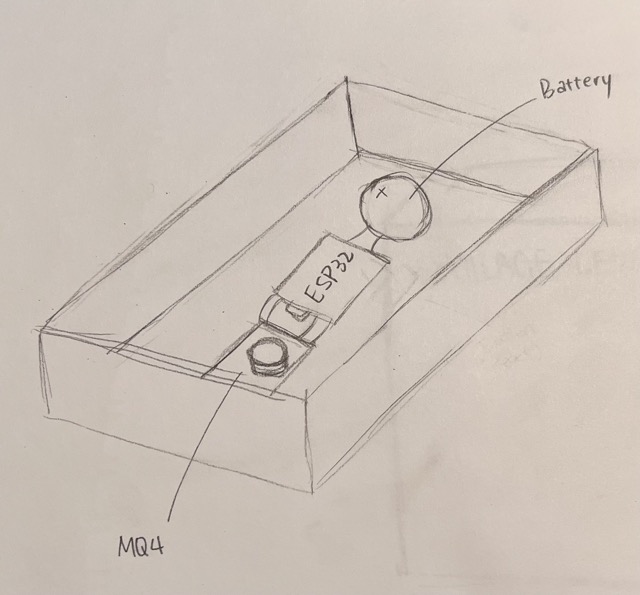 Battery
+
ESP32
MQ4